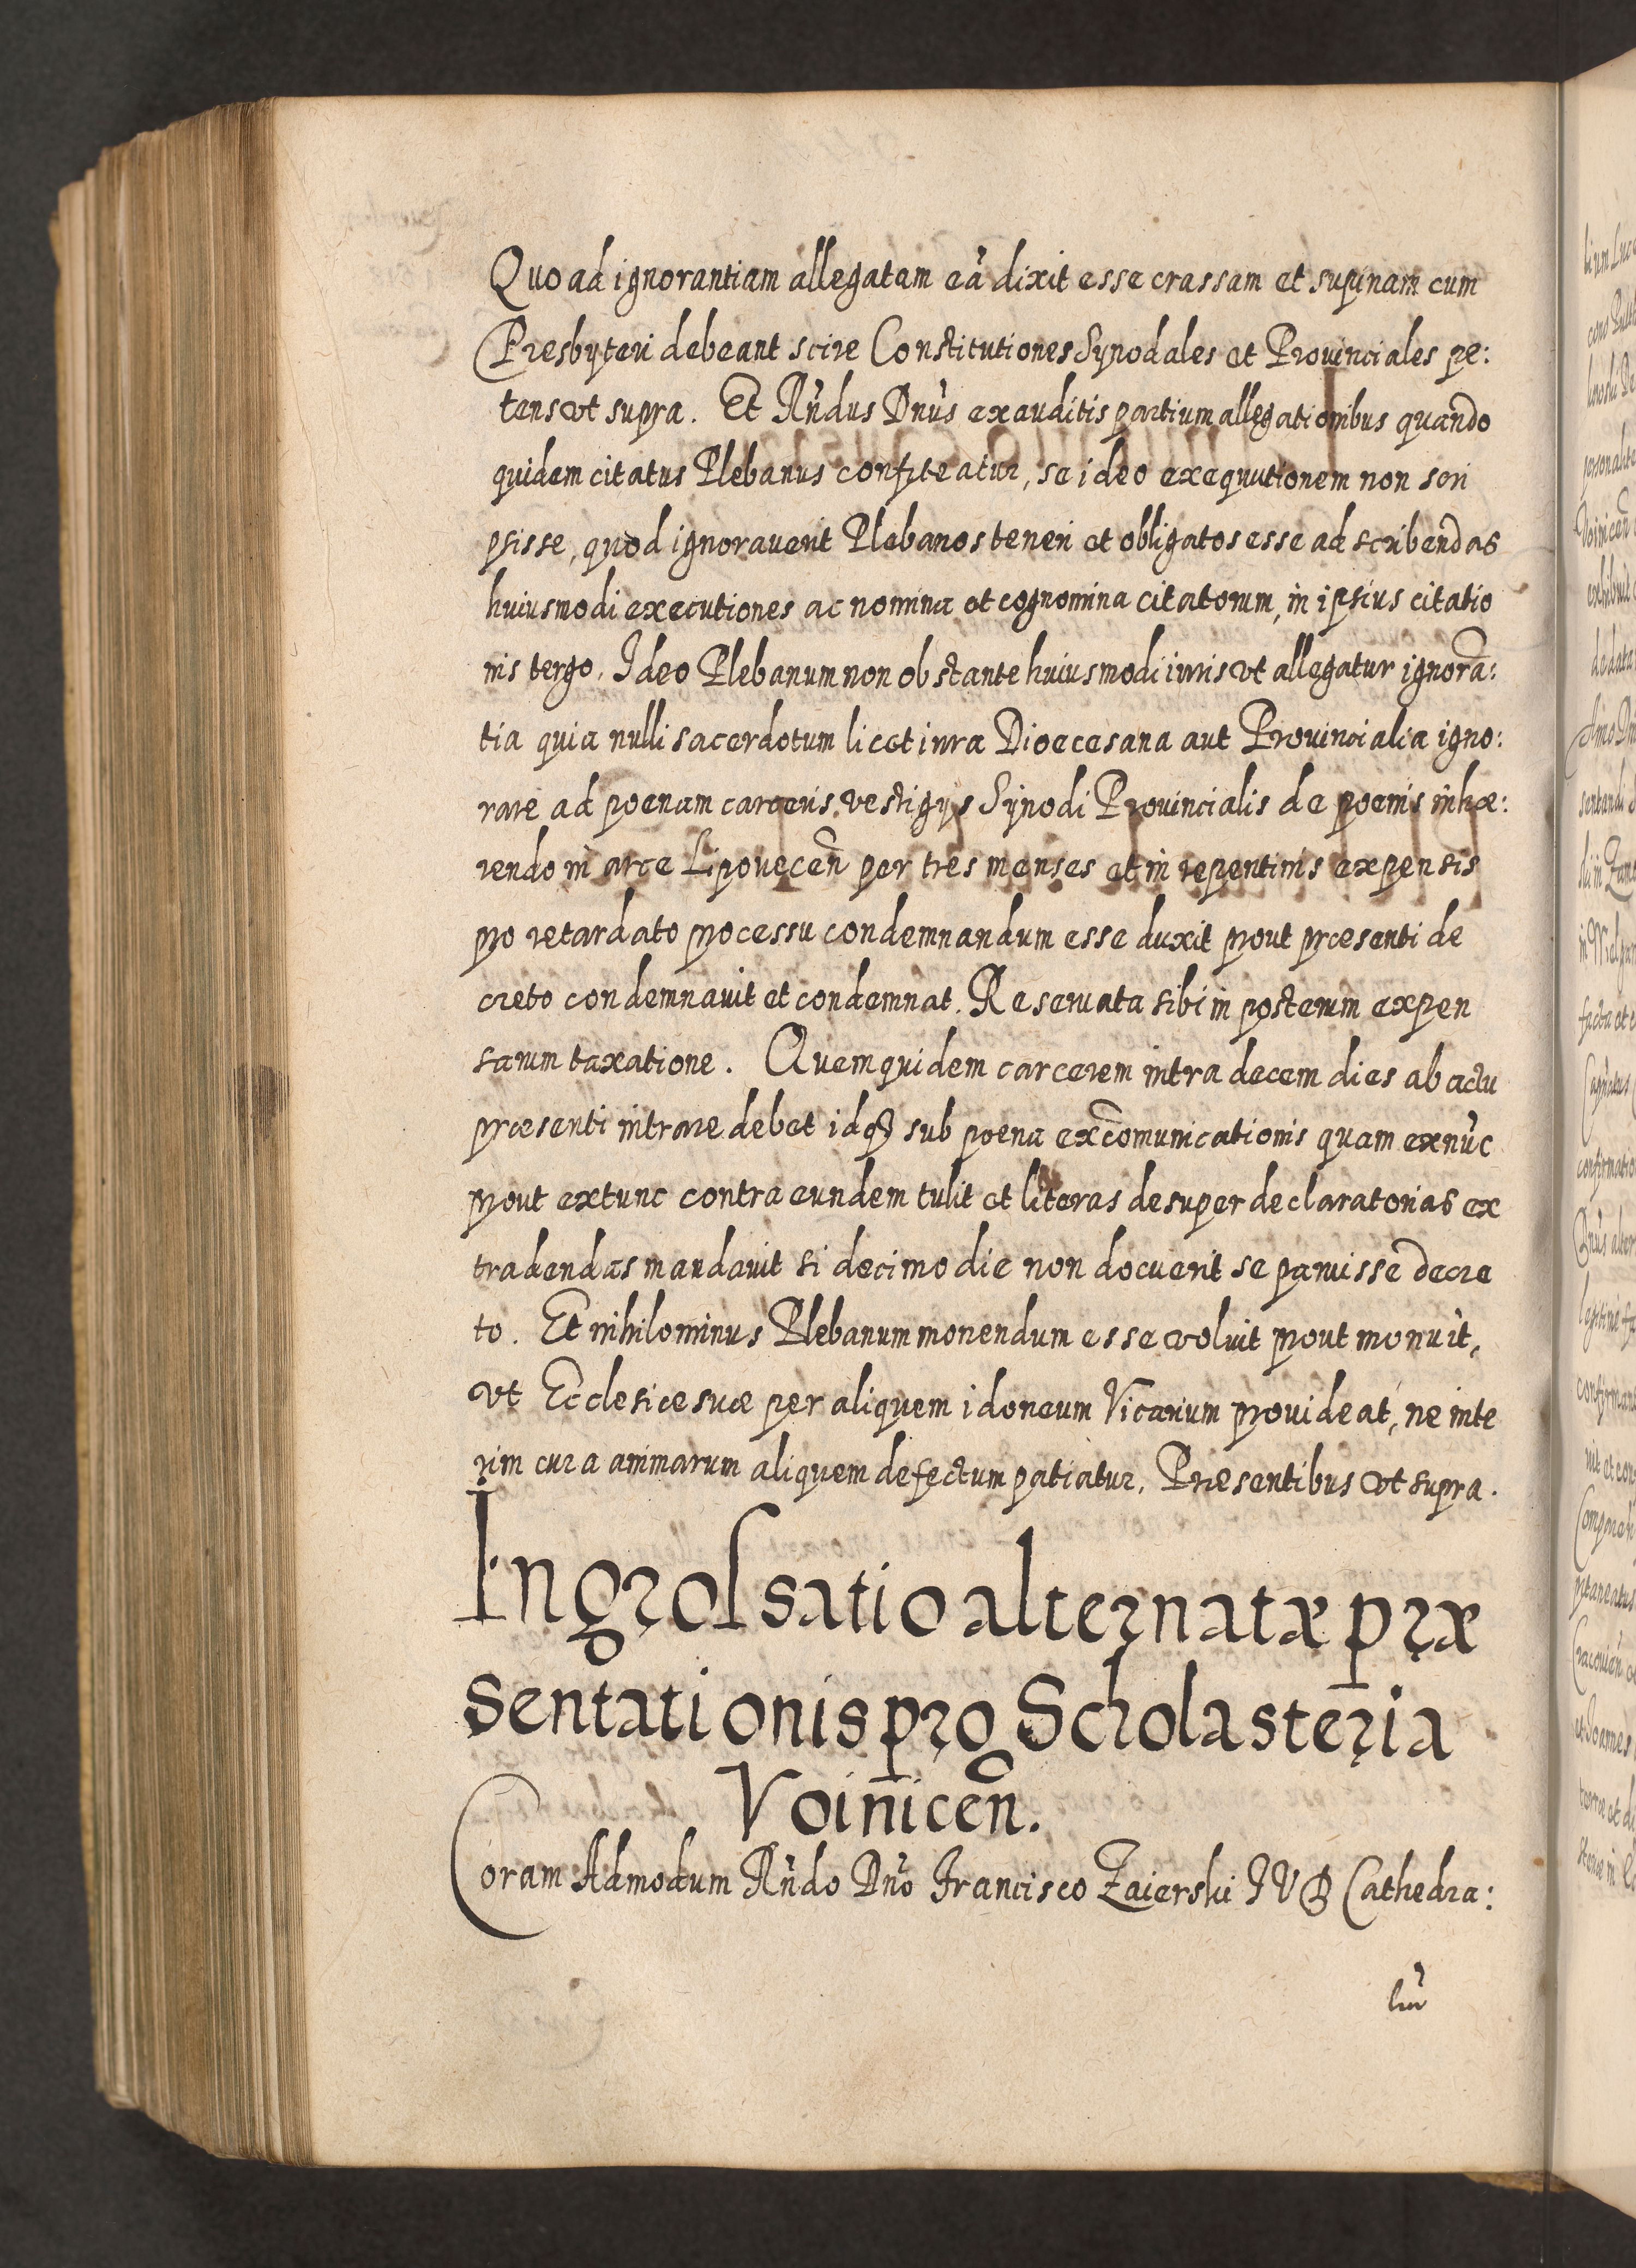 Quo ad ignorantiam allegatam eã dixit esse crassam et supinam cum
Presbyteri debeant scire Constitutiones Synodales et Provinciales pe:
tens vt supra. Et Rñdus Dnus exauditis partium allegationibus quando
quidem citatus Plebanus confiteatur, se ideo exequutionem non scri
psisse, quod ignorauerit Plebanos teneri et obligatos esse ad scribendas
huiusmodi executiones ac nomina et cognomina citatorum, in ipsius citatio
nis tergo. Ideo Plebanum non obstante huiusmodi iuris vt allegatur ignorã:
tia quia nulli sacerdotum licet iura Dioecesana aut Prouincialia igno:
rare ad poenam carceris vestigys Synodi Prouincialis de poenis inhæ:
rendo in arce Lipouecen̄ per tres menses et in repentinis expensis
pro retardato processu condemnandum esse duxit prout præsenti de
creto condemnauit et condemnat. Reseruata sibi in posterum expen
sarum taxatione. Quem quidem carcerem intra decem dies ab actu
præsenti intrare debet idq3 sub poena excõmunicationis quam ex nũc
prout ex tunc contra eundem tulit et literas desuper declaratorias ex
tradendas mandauit si decimo die non docuerit se paruisse decre
to. Et nihilominus Plebanum monendum esse voluit prout monuit,
vt Ecclesiæ suæ per aliquem idoneum Vicarium prouideat, ne inte
rim cura animarum aliquem defectum patiatur. Præsentibus vt supra.
Ingrossatio alternatæ præ
sentationis pro Scholasteria
Voinicen̄.
Coram Admodum Rñdo Dño Francisco Zaierski I V D Cathedra: